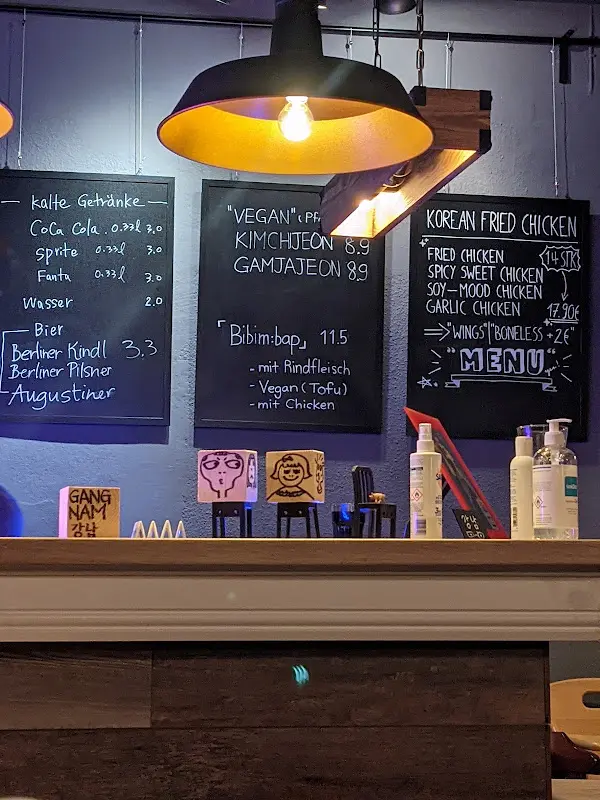 — Kalte Getränke —
CoCa Cola . 0.33l 3,0
sprite 0.33l 3,0
Fanta 0.33l 3,0
Wasser 2.0
Bier
Berliner Kindl 3.3
Berliner Pilsner
Augustiner
"VEGAN"
KIMCHIJEON 8.9
GAMJAJEON 8.9
「Bibim:bap」 11.5
- mit Rindfleisch
- Vegan (Tofu)
- mit Chicken
KOREAN FRIED CHICKEN
FRIED CHICKEN 14 STK
SPICY SWEET CHICKEN
SOY-MOOD CHICKEN
GARLIC CHICKEN 17.90€
⇒ "WINGS" | "BONELESS +2€"
"MENU"
GANG
NAM
강남
강남